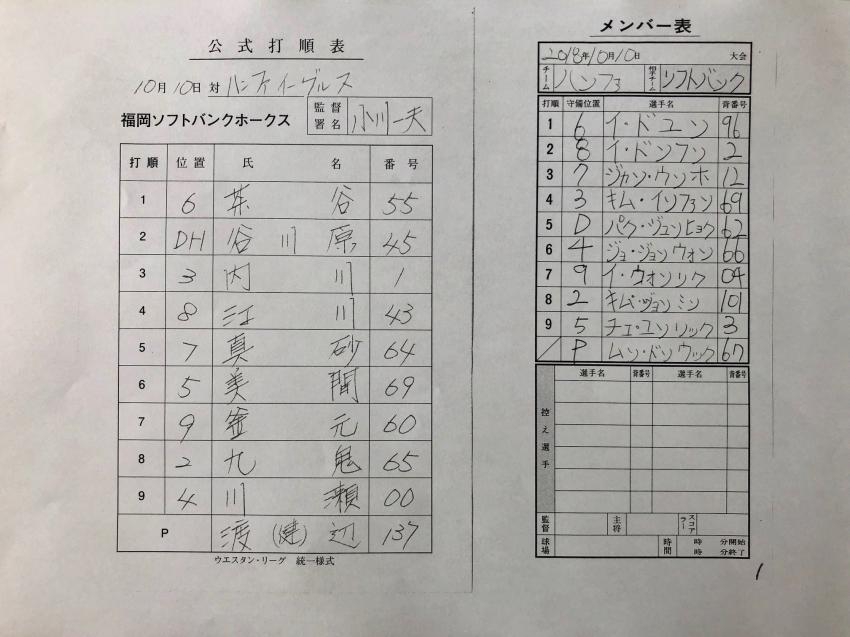 公式打順表
10月10日 対 ハンファイーグルス
福岡ソフトバンクホークス 監督署名 小川一夫
打順 位置 氏名 番号
1 6 茶谷 55
2 DH 谷川原 45
3 3 内川 1
4 8 江川 43
5 7 真砂 64
6 5 美間 69
7 9 釜元 60
8 2 九鬼 65
9 4 川瀬 00
P 渡(健)辺 137
ウエスタン・リーグ 統一様式
メンバー表
2018年10月10日 大会
チーム ハンファ ソフトバンク
打順 守備位置 選手名 背番号
1 6 イ・ドユン 96
2 8 イ・ドンフン 2
3 7 ジャン・ウンホ 12
4 3 キム・インファン 69
5 D パク・ジュンヒョク 62
6 4 ジョ・ジョンウォン 66
7 9 イ・ウォンソク 04
8 2 キム・ジョンミン 101
9 5 チェ・ユンソック 3
P ムン・ドンウック 67
選手名 背番号 選手名 背番号
控え選手
監督 主将 スコアラー
球場 時間 時 分開始
時 分終了
1